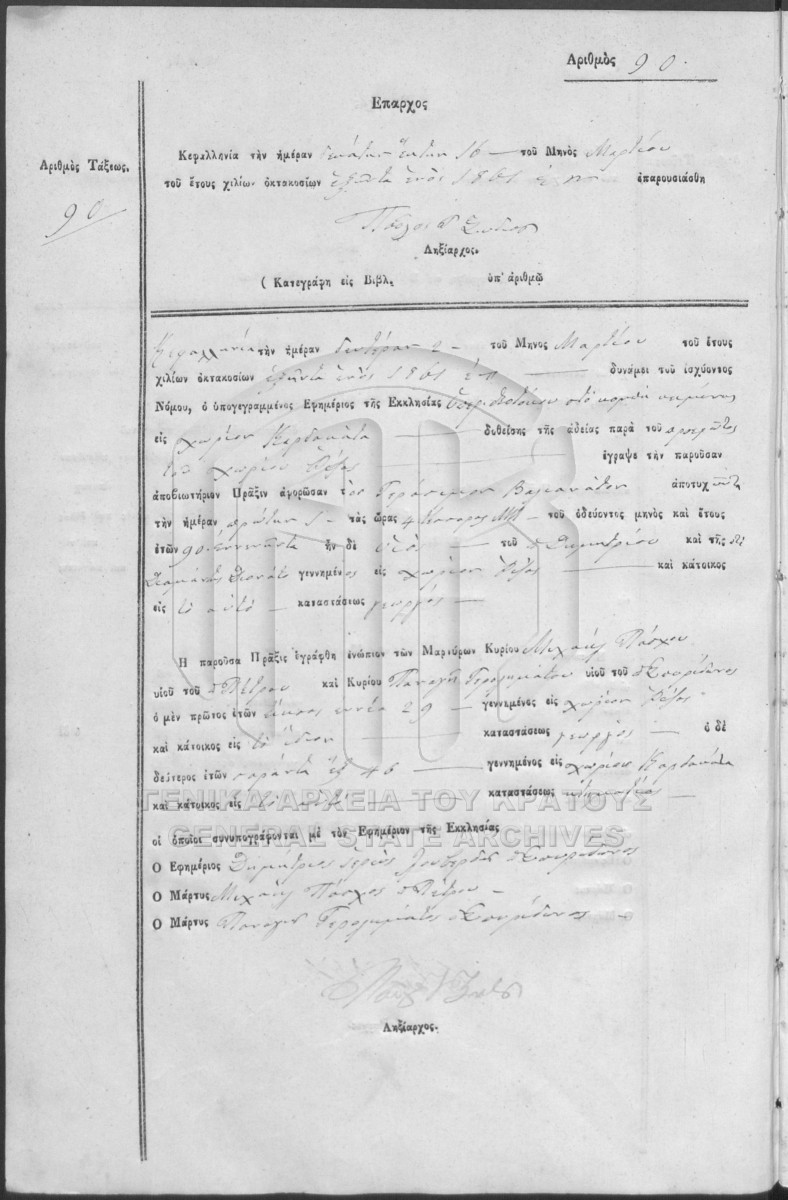 Αριθμὸς 90.
Επαρχος
Αριθμὸς Τάξεως.
90
Κεφαλληνία τὴν ἡμέραν δεκάτην ἕκτην 16 — τοῦ Μηνὸς Μαρτίου
τοῦ ἔτους χιλίων ὀκτακοσίων ἑξῆντα ἑνὸς 1861 ἐπαρουσιάσθη
Ληξίαρχος.
( Κατεγράφη εἰς Βιβλ. ὑπ' ἀριθμῷ
Κεφαλληνία τὴν ἡμέραν δευτέραν 2 — τοῦ Μηνος Μαρτίου τοῦ ἔτους
χιλίων ὀκτακοσίων ἑξῆντα ἑνὸς 1861 — δυνάμει τοῦ ἰσχύοντος
Νόμου, ὁ ὑπογεγραμμένος Εφημέριος τῆς Εκκλησίας
εἰς χωρίον Καρδακάτα — δοθείσης τῆς ἀδείας παρὰ τοῦ
χωρίου — ἔγραψε τὴν παροῦσαν
ἀποβιωτήριον Πρᾶξιν ἀφορῶσαν τὸν Γεράσιμον Βαλιανάτον ἀποτυχ
τὴν ἡμέραν πρώτην 1 — τὰς ὥρας 4 — τοῦ ὁδεύοντος μηνὸς καὶ ἔτους
ἐτῶν 90 ἐννενῆντα ἦν δὲ υἱὸς — τοῦ Δημητρίου καὶ τῆς
γεννημένος εἰς χωρίον — καὶ κάτοικος
εἰς τὸ αὐτὸ — καταστάσεως γεωργὸς —
Η παροῦσα Πρᾶξις ἐγράφθη ἐνώπιον τῶν Μαρτύρων Κυρίου Μιχαὴλ Πάσχου
υἱοῦ τοῦ Πέτρου καὶ Κυρίου Παναγῆ Γερολυμάτου υἱοῦ τοῦ Σπυρίδωνος
ὁ μὲν πρῶτος ἐτῶν εἴκοσι ἐννέα 29 — γεννημένος εἰς χωρίον
καὶ κάτοικος εἰς τὸ ἴδιον — καταστάσεως γεωργὸς — ὁ δὲ
δεύτερος ἐτῶν σαράντα ἓξ 46 — γεννημένος εἰς χωρίον Καρδακάτα
καὶ κάτοικος εἰς τὸ αὐτὸ — καταστάσεως κτηματίας —
ΓΕΝΙΚΑ ΑΡΧΕΙΑ ΤΟΥ ΚΡΑΤΟΥΣ
GENERAL STATE ARCHIVES
οἱ ὁποῖοι συνυπογράφονται μὲ τὸν Εφημέριον τῆς Εκκλησίας
Ο Εφημέριος Δημήτριος Ἱερεὺς Σπυρίδωνος
Ο Μάρτυς Μιχαὴλ Πάσχος Πέτρου —
Ο Μάρτυς Παναγῆς Γερολυμάτος Σπυρίδωνος —
Ληξίαρχος.